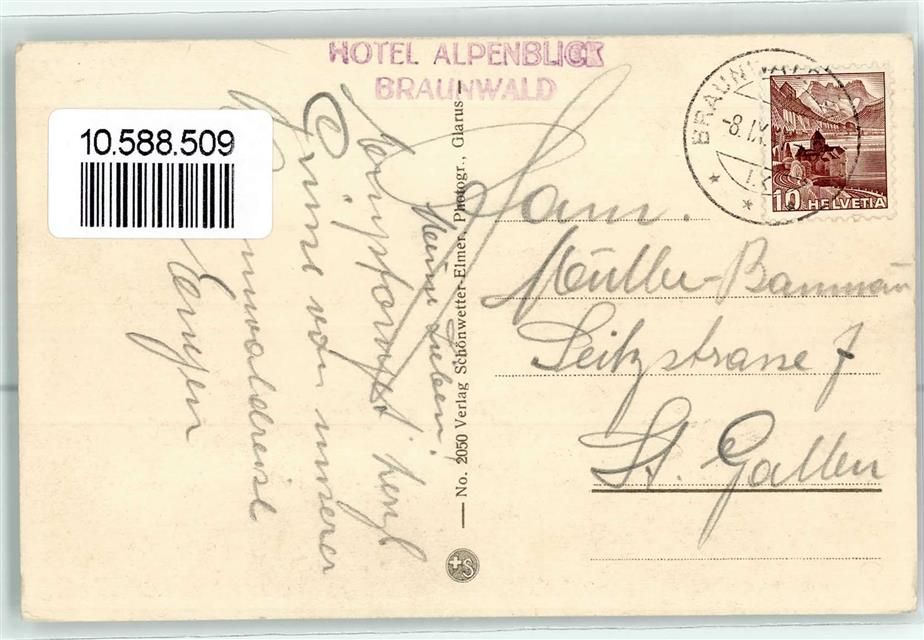 HOTEL ALPENBLICK
BRAUNWALD
10.588.509
BRAUNWALD
-8.IX.
10 HELVETIA
Fam.
Müller-Baumann
Seitzstrasse 7
St. Gallen
No. 2050 Verlag Schönwetter-Elmer, Photogr., Glarus
+S
Meine Lieben,
herzl.
Grüsse von unserer